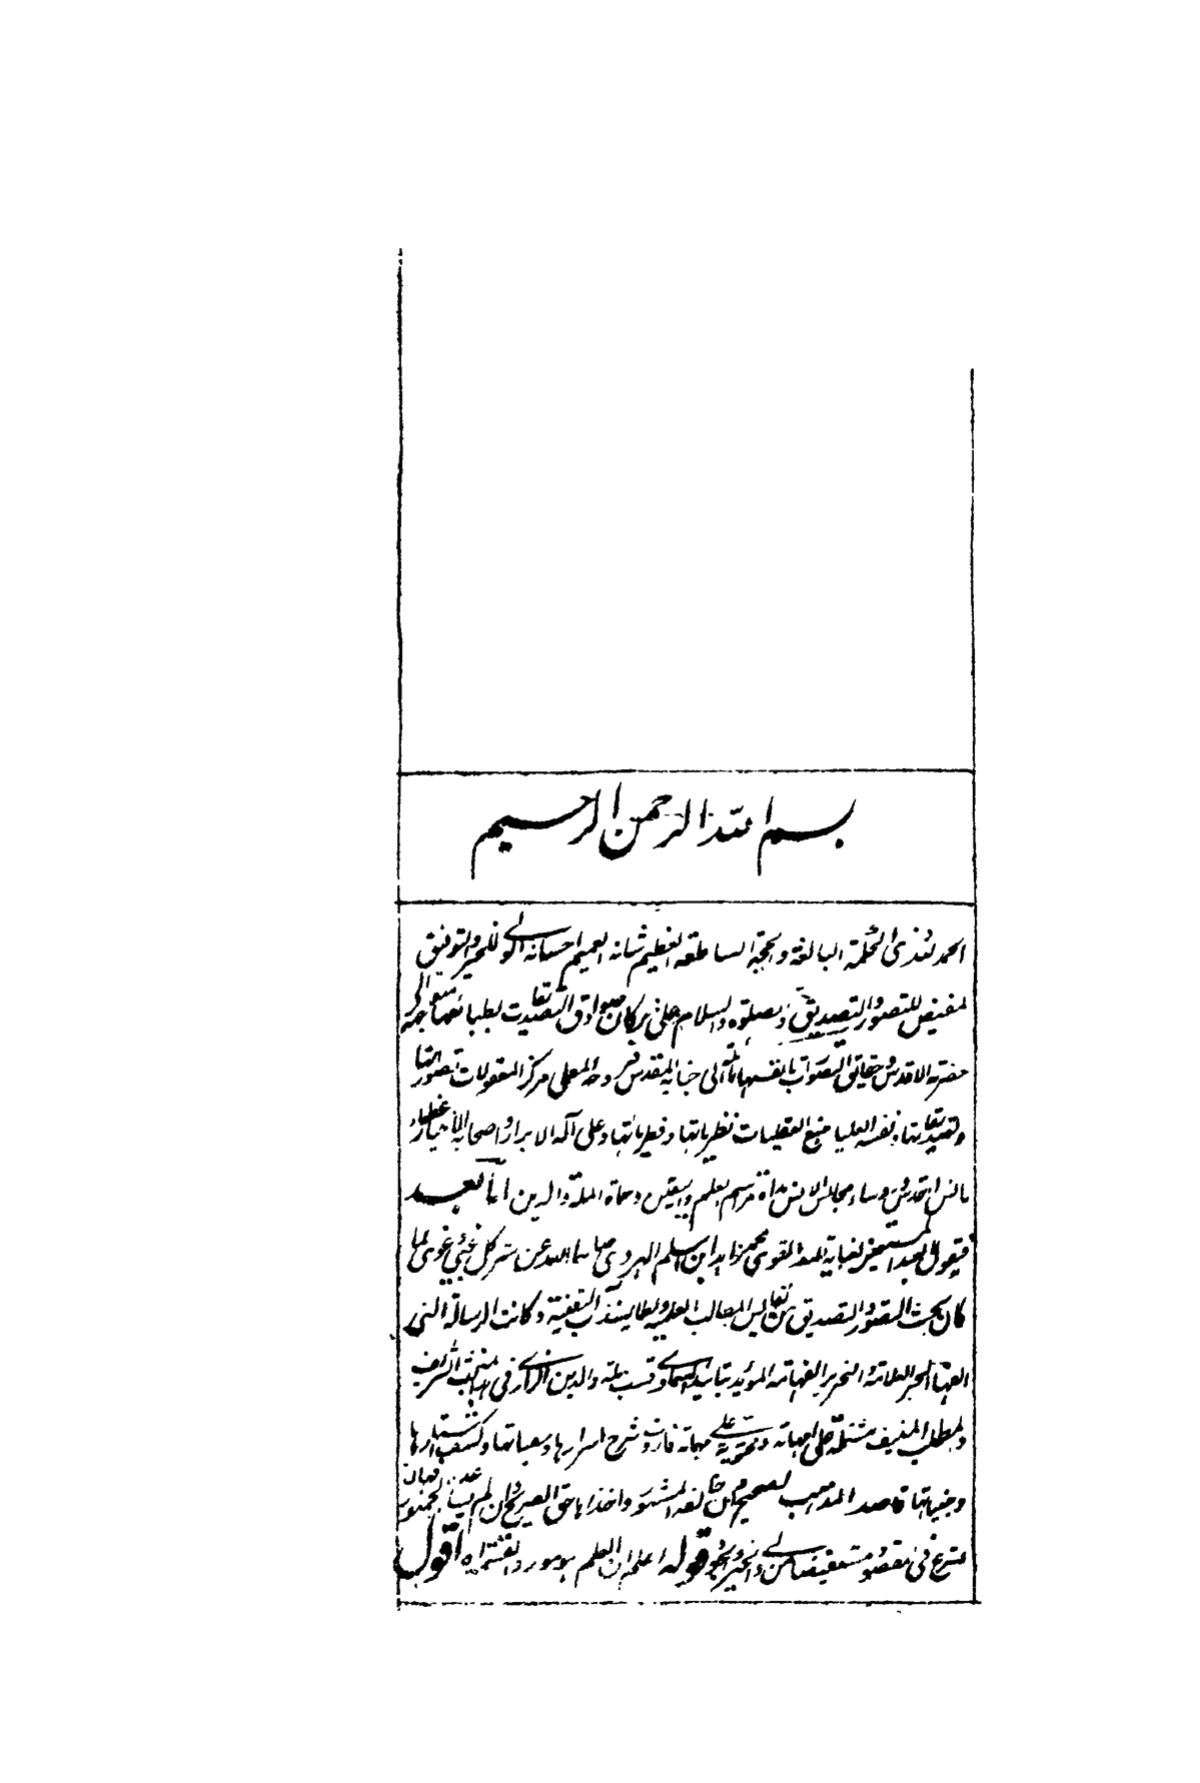 بسم الله الرحمن الرحيم
الحمد لله ذى الحكمة البالغة والحجة الساطعة العظيم شانه العميم احسانه الولى للخير والتوفيق
المفيض للتصور والتصديق والصلوة والسلام على من كان صوادق التصديقات بطبائعها متوجهة الى
حضرته الاقدس وحقائق التصورات بانفسها مائلة الى جنابه المقدس فروحه المعلى مركز المعقولات تصوراتها
وتصديقاتها ونفسه العليا منبع العقليات نظرياتها وفطرياتها وعلى آله الابرار واصحابه الاخيار عظماء
مجالس القدس ورؤساء مجالس الانس هداة مراسم العلم واليقين وحماة الملة والدين اما بعد
فيقول العبد المستعين بعناية الله القوى محمد زاهد ابن اسلم الهروى صانهما الله عن شر كل غبى وغوى لما
كان بحث التصور والتصديق من نفايس المطالب العلمية ولطايف المآرب اليقينية وكانت الرسالة التى
الفها الحبر العلامة النحرير الفهامة المؤيد بتائيد السماوى قطب الملة والدين الرازى فى هذا المبحث الشريف
والمطلب المنيف مشتملة على امهاته ومحتوية على مهماته فاردت شرح اسرارها ومعمياتها وكشف استارها
وخبياتها قاصدا المذهب الصحيح وان خالفه المشهور واخذا بالحق الصريح وان لم يساعده الجمهور فها انا
اشرع فى المقصود مستفيضا من ولى الخير والجود قوله اعلم ان العلم هو مورد القسمة اه اقول